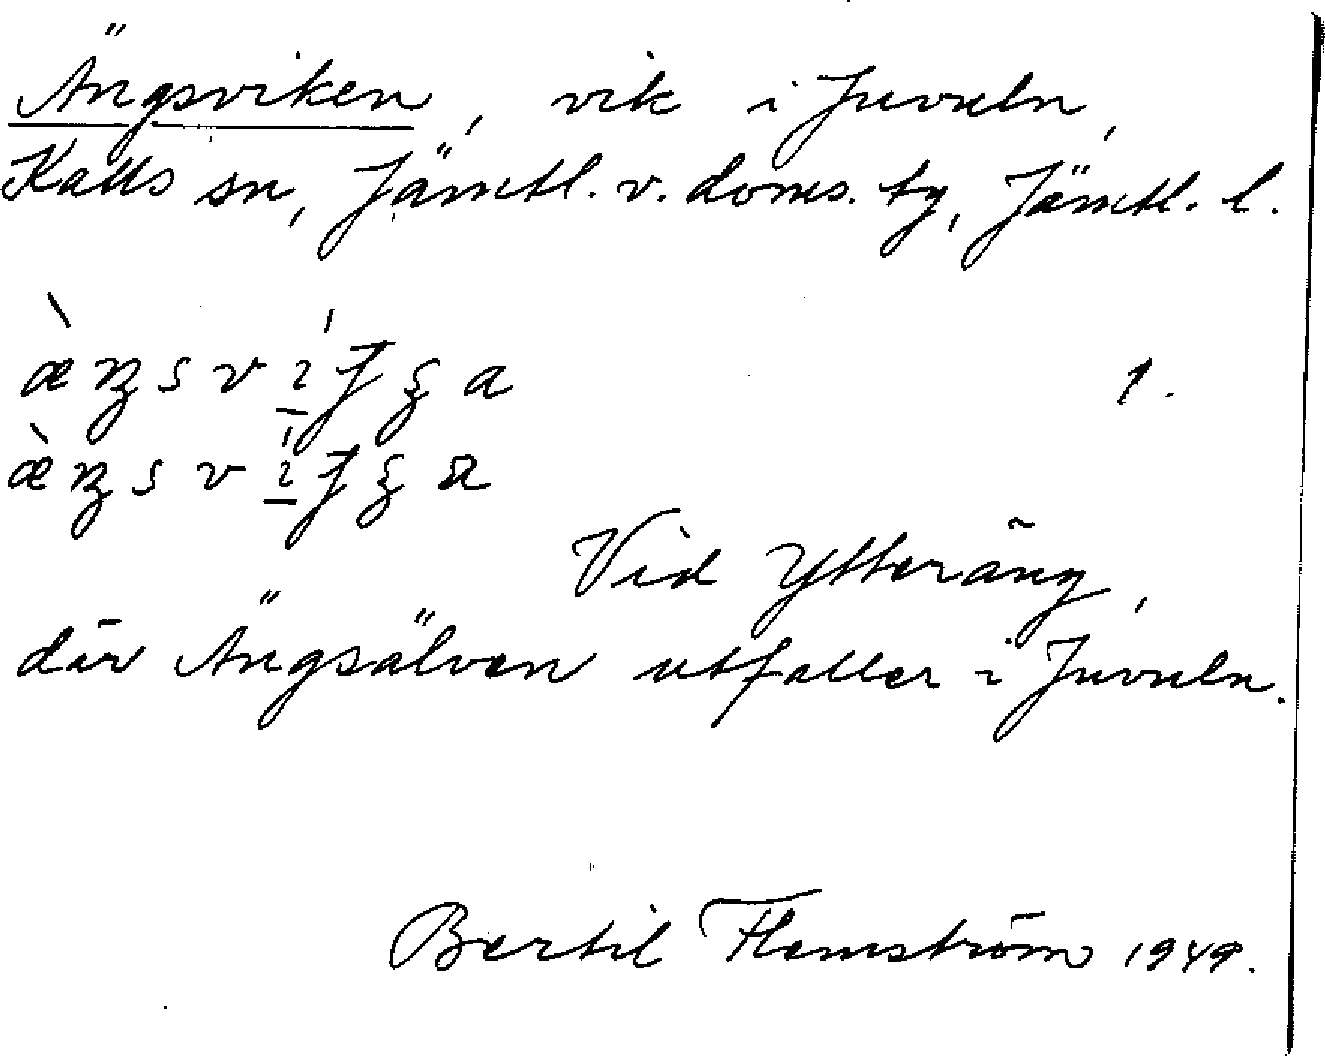 Ängsviken, vik i Juvuln,
Kalls sn, Jämtl. v. doms. tg, Jämtl. l.
1.
Vid Ytteräng,
där Ängsälven utfaller i Juvuln.
Bertil Flemström 1949.